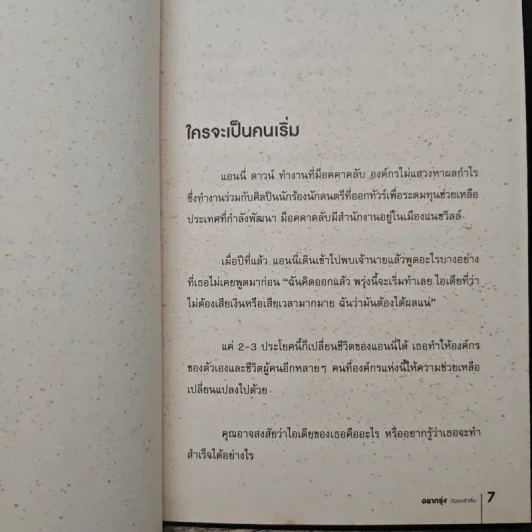 ใครจะเป็นคนเริ่ม
แอนนี่ ดาวน์ ทำงานที่ม็อคคาคลับ องค์กรไม่แสวงหาผลกำไร
ซึ่งทำงานร่วมกับศิลปินนักร้องนักดนตรีที่ออกทัวร์เพื่อระดมทุนช่วยเหลือ
ประเทศที่กำลังพัฒนา ม็อคคาคลับมีสำนักงานอยู่ในเมืองแนชวิลล์
เมื่อปีที่แล้ว แอนนี่เดินเข้าไปพบเจ้านายแล้วพูดอะไรบางอย่าง
ที่เธอไม่เคยพูดมาก่อน “ฉันคิดออกแล้ว พรุ่งนี้จะเริ่มทำเลย ไอเดียที่ว่า
ไม่ต้องเสียเงินหรือเสียเวลามากมาย ฉันว่ามันต้องได้ผลแน่”
แค่ 2-3 ประโยคนี้ก็เปลี่ยนชีวิตของแอนนี่ได้ เธอทำให้องค์กร
ของตัวเองและชีวิตผู้คนอีกหลายๆ คนที่องค์กรแห่งนี้ให้ความช่วยเหลือ
เปลี่ยนแปลงไปด้วย
คุณอาจสงสัยว่าไอเดียของเธอคืออะไร หรืออยากรู้ว่าเธอจะทำ
สำเร็จได้อย่างไร
อยากรุ่ง ต้องกล้าเริ่ม 7